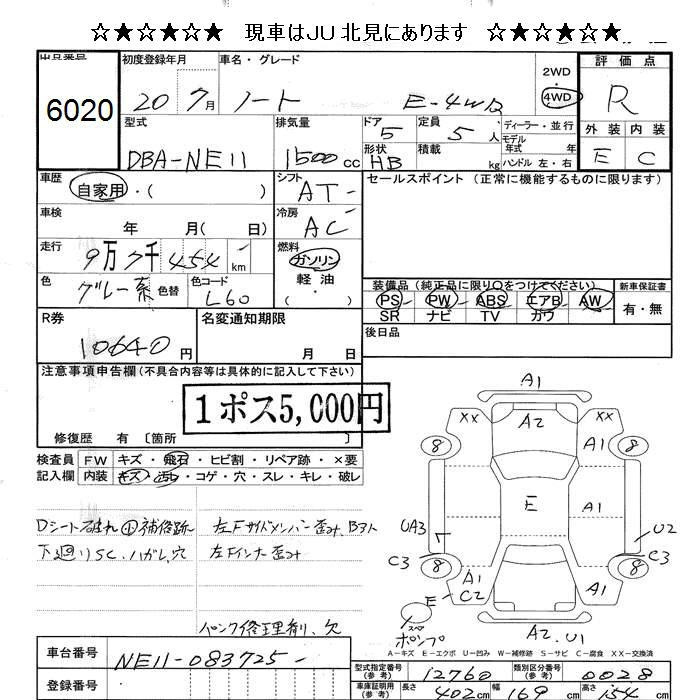 ☆★☆★☆★ 現車はJU北見にあります ☆★☆★☆★
出品番号 初度登録年月 車名・グレード 評価点
6020 20 7月 ノート E-4WD 2WD 4WD R
型式 排気量 ドア 定員 ディーラー・並行 外装 内装
DBA-NE11 1500cc 5 5人 モデル年式 年 E C
形状 HB 積載 kg ハンドル 左・右
車歴 シフト セールスポイント (正常に機能するものに限ります)
自家用・( ) AT-
車検 冷房
年 月( 日) AC
走行 燃料
9万7千454 km ガソリン
色 色コード 軽油
グレー系 色替 L60 ( ・ )
装備品(純正品に限り○をつけてください) 新車保証書
PS PW ABS エアB AW 有・無
SR ナビ TV カワ
R券 名変通知期限 後日品
10640円 月 日
注意事項申告欄(不具合内容等は具体的に記入して下さい)
1ポス5,000円
修復歴 有 〔箇所 〕
検査員 FW キズ・飛石・ヒビ割・リペア跡・×要
記入欄 内装 キズ・汚れ・コゲ・穴・スレ・キレ・破レ
Dシート破れ 補修跡 左Fサイドメンバー歪み、
下廻りSC、ハガレ、穴 左Fインナー歪み
パンク修理剤、欠
A1
XX A2 XX
8 A1 8
E A1
UA3 U2
C3 C3
8 8
A1 A1
E C2
スペア
ポンプ A2、U1
A-キズ E-エクボ U-凹み W-補修跡 S-サビ C-腐食 XX-交換済
車台番号 NE11-083725-
登録番号
型式指定番号(参考) 12760 類別区分番号(参考) 0028
車庫証明用(参考) 長さ 402cm 幅 169cm 高さ 154cm